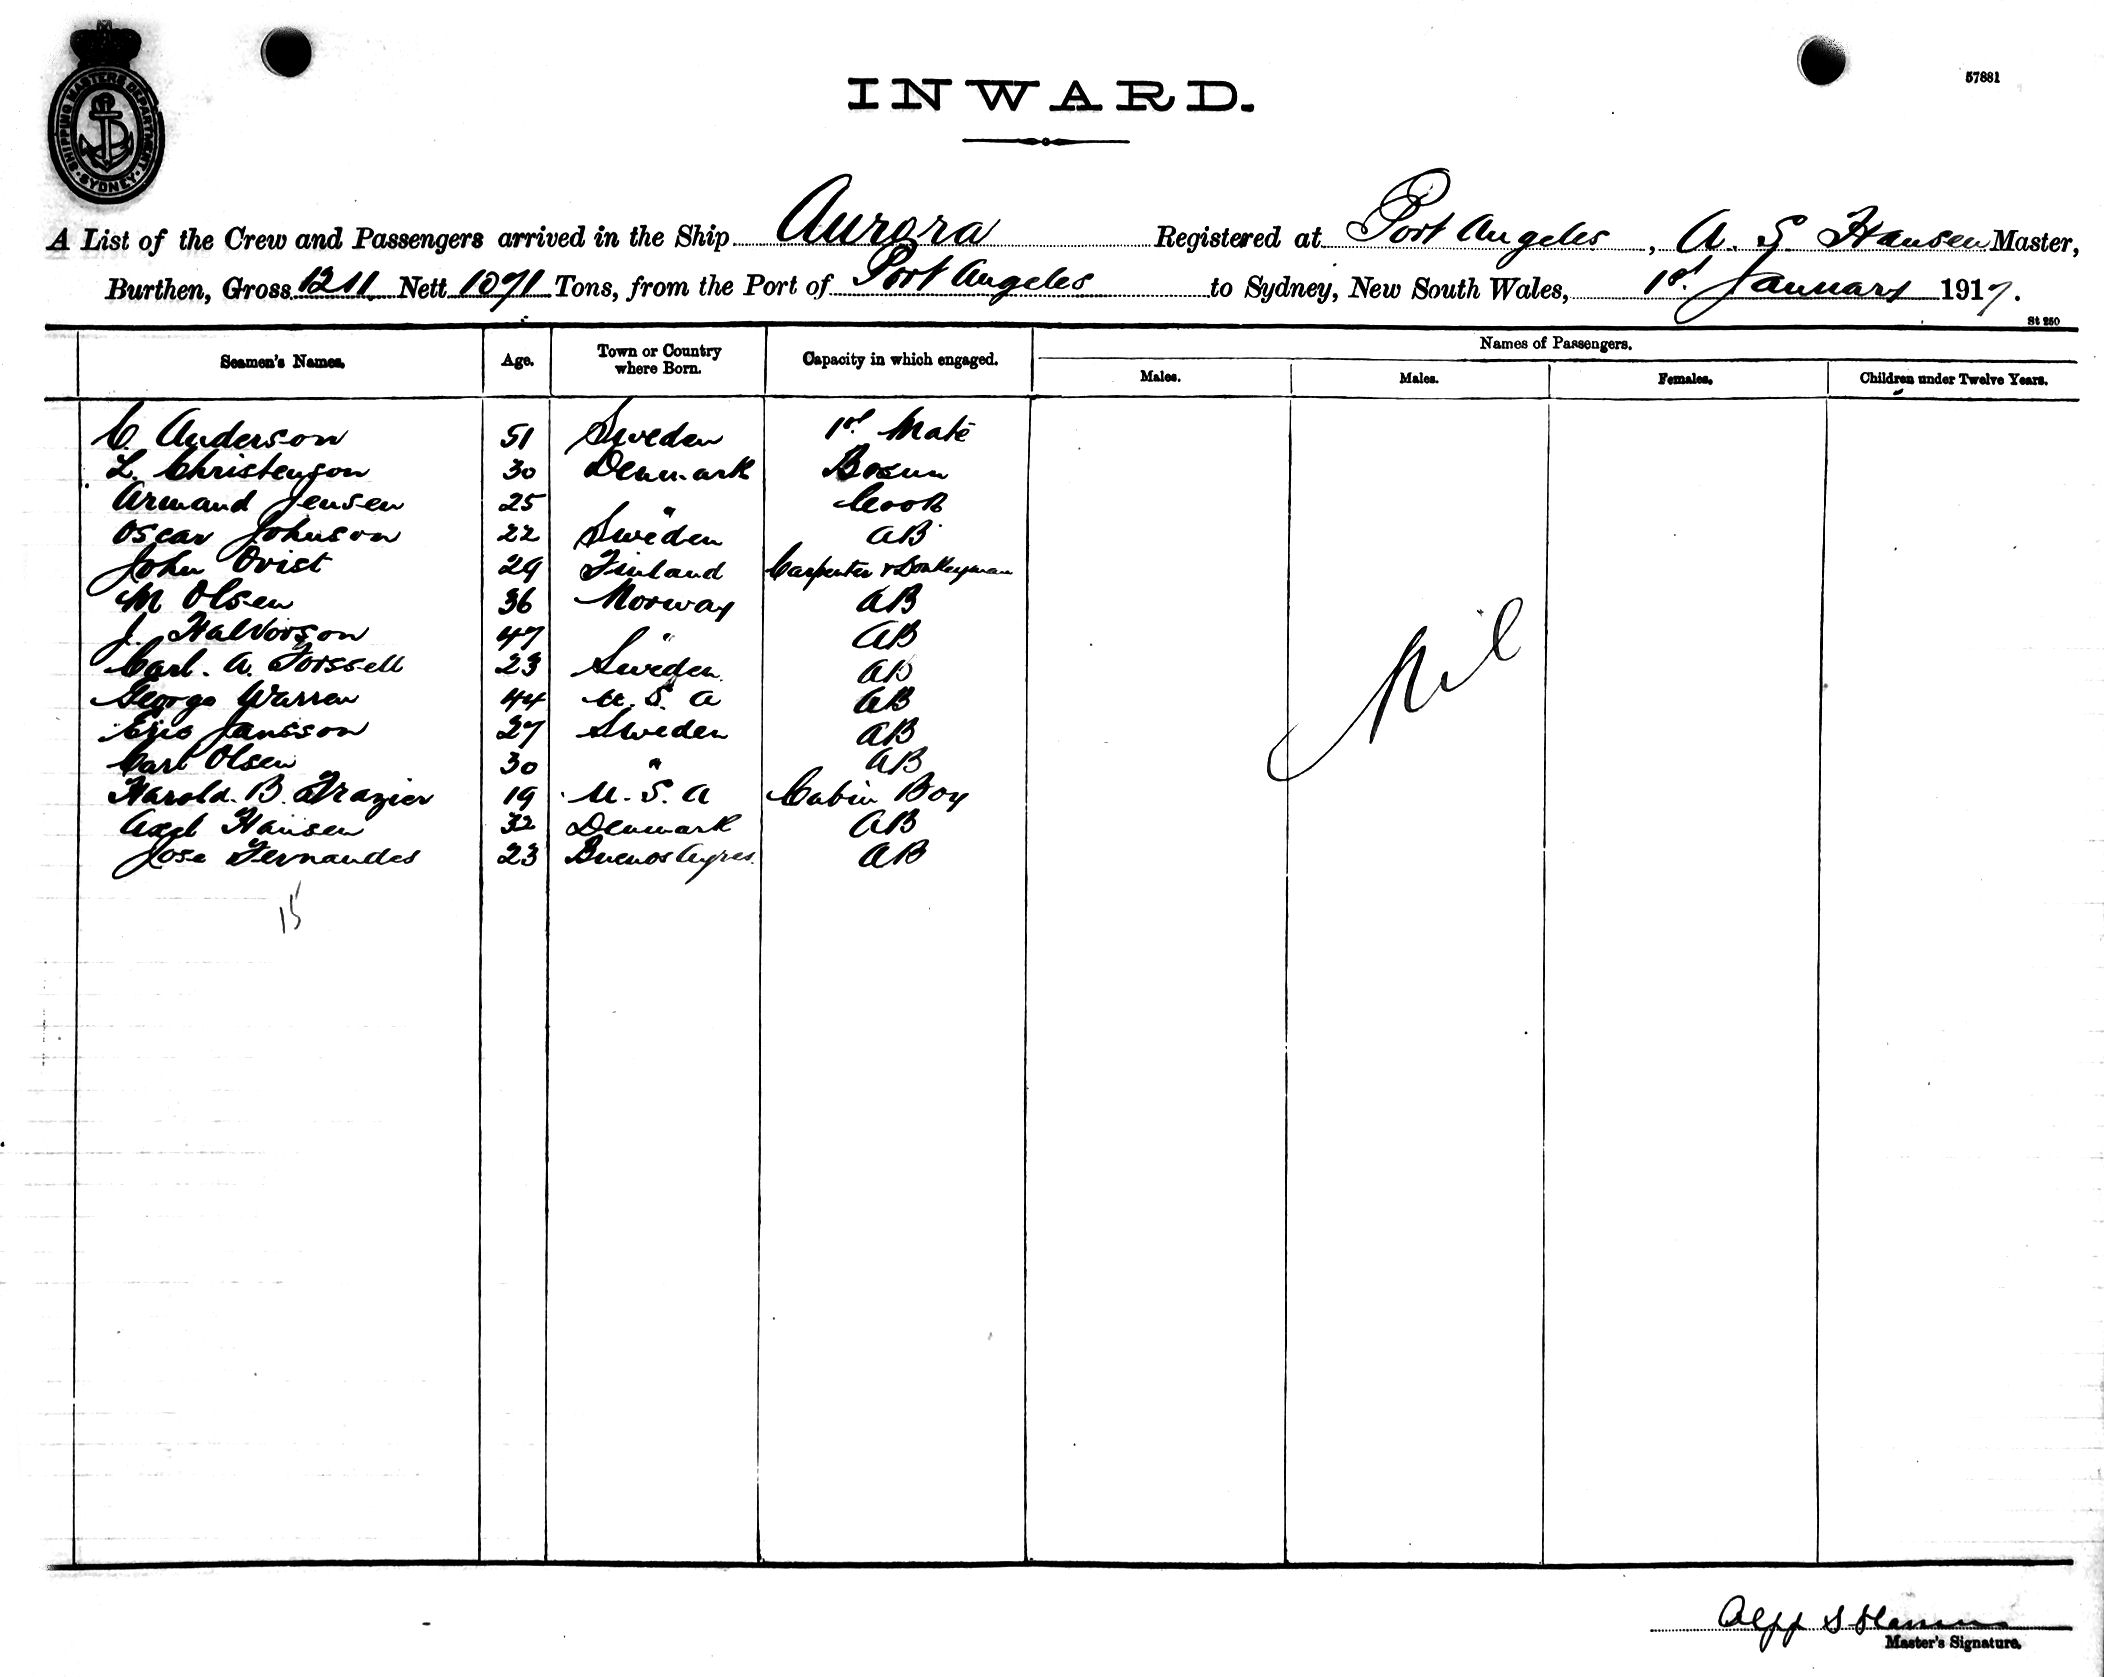 SHIPPING MASTERS DEPARTMENT
SYDNEY
57881
INWARD.
A List of the Crew and Passengers arrived in the Ship Aurora Registered at Port Angeles, A. S. Hansen Master,
Burthen, Gross 1211 Nett 1091 Tons, from the Port of Port Angeles to Sydney, New South Wales, 1st January 1917.
St 250
Seamen's Names. Age. Town or Country where Born. Capacity in which engaged. Names of Passengers.
Males. Males. Females. Children under Twelve Years.
C. Anderson 51 Sweden 1st Mate
L. Christenson 30 Denmark Bosun
Armand Jensen 25 " Cook
Oscar Johnson 22 Sweden AB
John Ovist 29 Finland Carpenter & Donkeyman
M Olsen 36 Norway AB
J. Halvorson 47 " AB
Carl. A. Forssell 23 Sweden AB
George Warren 44 U. S. A AB
Eric Jansson 27 Sweden AB
Carl Olsen 30 " AB
Harold. B. Frazier 19 U. S. A Cabin Boy
Axel Hansen 32 Denmark AB
Jose Fernandes 23 Buenos Ayres. AB
15
Nil
S Hansen
Master's Signature.